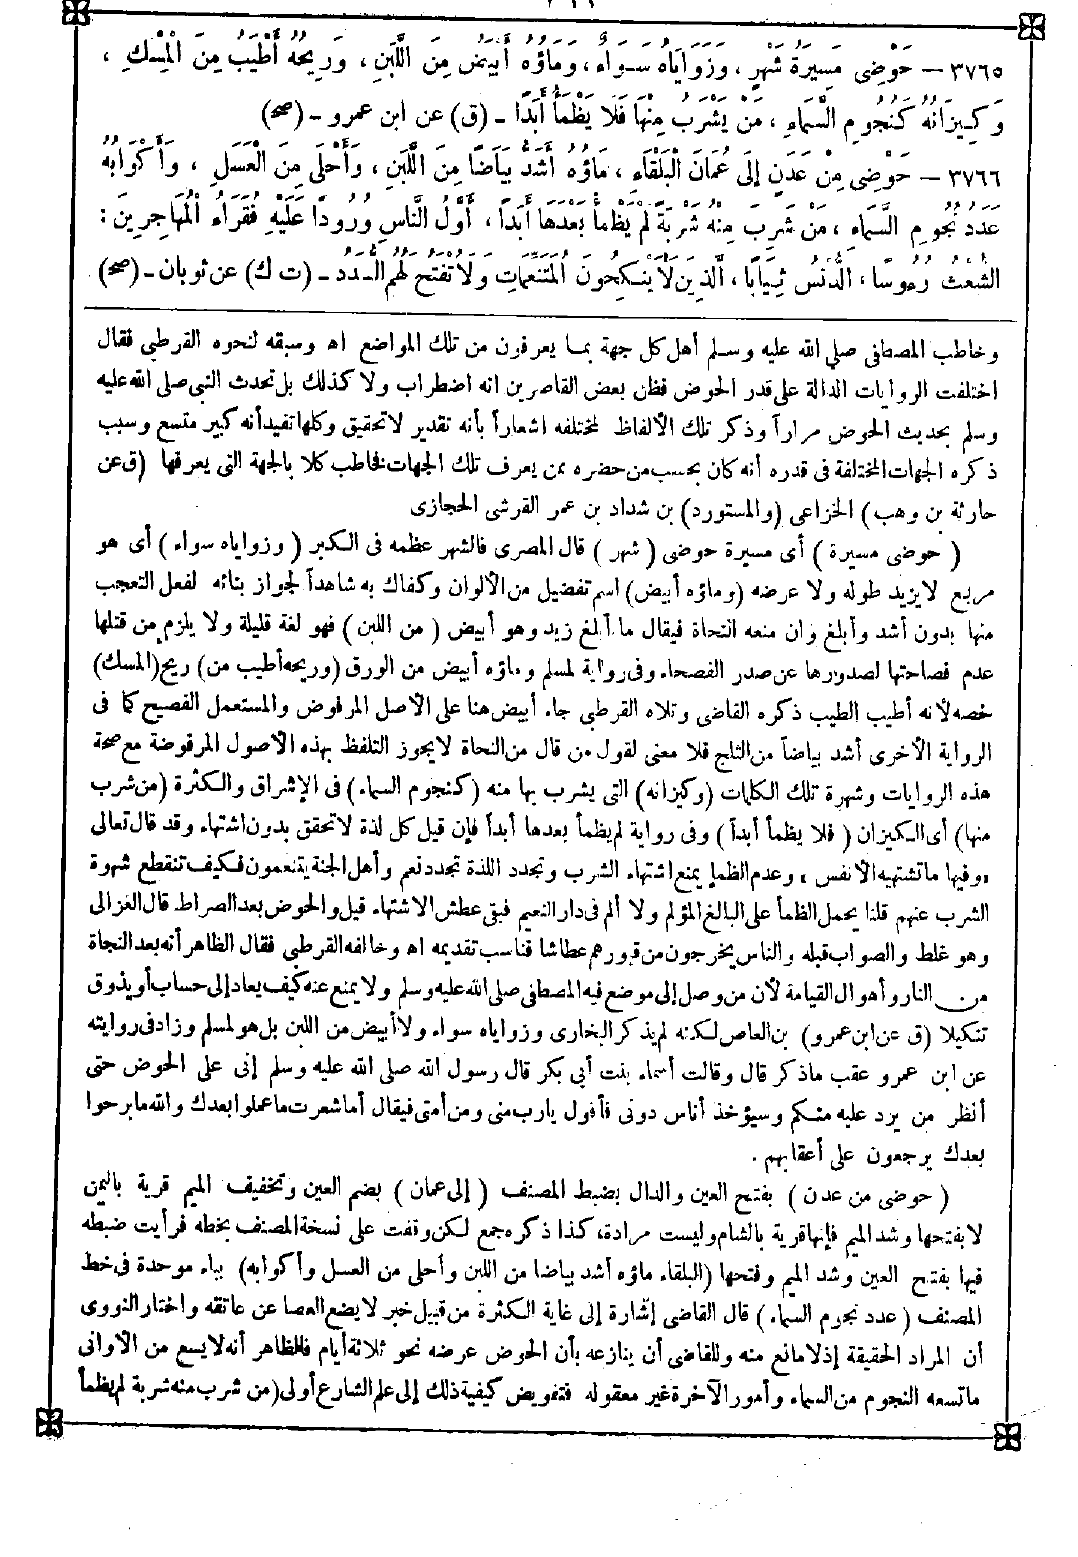 ٣٧٦٥ – حَوْضِى مَسِيرَةُ شَهْرٍ، وَزَوَايَاهُ سَوَاءٌ، وَمَاؤُهُ أَبْيَضُ مِنَ اللَّبَنِ، وَرِيحُهُ أَطْيَبُ مِنَ الْمِسْكِ،
وَكِيزَانُهُ كَنُجُومِ السَّمَاءِ، مَنْ يَشْرَبُ مِنْهَا فَلَا يَظْمَأُ أَبَدًا – (ق) عن ابن عمرو – (صح)
٣٧٦٦ – حَوْضِى مِنْ عَدَنٍ إِلَى عُمَانَ الْبَلْقَاءِ، مَاؤُهُ أَشَدُّ بَيَاضًا مِنَ اللَّبَنِ، وَأَحْلَى مِنَ الْعَسَلِ، وَأَكْوَابُهُ
عَدَدُ نُجُومِ السَّمَاءِ، مَنْ شَرِبَ مِنْهُ شَرْبَةً لَمْ يَظْمَأْ بَعْدَهَا أَبَداً، أَوَّلُ النَّاسِ وُرُودًا عَلَيْهِ فُقَرَاءُ الْمُهَاجِرِينَ:
الشُّعْثُ رُءُوسًا، الدُّنْسُ ثِيَابًا، الَّذِينَ لَا يَنْكِحُونَ الْمُتَنَعِّمَاتِ وَلَا تُفْتَحُ لَهُمُ السُّدَدُ – (ت ك) عن ثوبان – (صح)
وخاطب المصطفى صلى الله عليه وسلم أهل كل جهة بما يعرفون من تلك المواضع اه وسبقه لنحوه القرطبى فقال
اختلفت الروايات الدالة على قدر الحوض فظن بعض القاصرين انه اضطراب ولا كذلك بل تحدث النبى صلى الله عليه
وسلم بحديث الحوض مراراً وذكر تلك الألفاظ المختلفه اشعاراً بأنه تقدير لا تحقيق وكلها تفيد أنه كبير متسع وسبب
ذكره الجهات المختلفة فى قدره أنه كان بحسب من حضره ممن يعرف تلك الجهات فخاطب كلا بالجهة التى يعرفها (ق عن
حارثة بن وهب) الخزاعى (والمستورد) بن شداد بن عمر القرشى الحجازى
(حوضى مسيرة) أى مسيرة حوضى (شهر) قال المصرى فالشهر عظمه فى الكبر (وزواياه سواء) أى هو
مربع لا يزيد طوله ولا عرضه (وماؤه أبيض) اسم تفضيل من الألوان وكفاك به شاهداً لجواز بنائه لفعل التعجب
منها بدون أشد وأبلغ وان منعه النحاة فيقال ما أبلغ زيد وهو أبيض (من اللبن) فهو لغة قليلة ولا يلزم من قتلها
عدم فصاحتها لصدورها عن صدر الفصحاء وفى رواية لمسلم وماؤه أبيض من الورق (وريحه أطيب من) ريح (المسك)
خصه لأنه أطيب الطيب ذكره القاضى وتلاه القرطبى جاء أبيض هنا على الأصل المرفوض والمستعمل الفصيح كما فى
الرواية الأخرى أشد بياضاً من الثلج فلا معنى لقول من قال من النحاة لا يجوز التلفظ بهذه الأصول المرفوضة مع صحة
هذه الروايات وشهرة تلك الكلمات (وكيزانه) التى يشرب بها منه (كنجوم السماء) فى الإشراق والكثرة (من شرب
منها) أى الكيزان (فلا يظمأ أبداً) وفى رواية لم يظمأ بعدها أبداً فإن قيل كل لذة لا تحقق بدون اشتهاء وقد قال تعالى
«وفيها ما تشتهيه الأنفس» وعدم الظمإ يمنع اشتهاء الشرب وتجدد اللذة تجدد نعم وأهل الجنة يتنعمون فكيف تنقطع شهوة
الشرب عنهم قلنا يحمل الظمأ على البالغ المؤلم ولا ألم فى دار النعيم فبقى عطش الاشتهاء قيل والحوض بعد الصراط قال الغزالى
وهو غلط والصواب قبله والناس يخرجون من قبورهم عطاشا فناسب تقديمه اه وخالفه القرطبى فقال الظاهر أنه بعد النجاة
من النار وأهوال القيامة لأن من وصل إلى موضع فيه المصطفى صلى الله عليه وسلم ولا يمنع عنه كيف يعاد إلى حساب أو يذوق
تنكيلا (ق عن ابن عمرو) بن العاص لكنه لم يذكر البخارى وزواياه سواء ولا أبيض من اللبن بل هو لمسلم وزاد فى روايته
عن ابن عمرو عقب ما ذكر قال وقالت أسماء بنت أبى بكر قال رسول الله صلى الله عليه وسلم إنى على الحوض حتى
أنظر من يرد عليه منكم وسيؤخذ أناس دونى فأقول يارب منى ومن أمتى فيقال أما شعرت ما عملوا بعدك والله ما برحوا
بعدك يرجعون على أعقابهم .
(حوضى من عدن) بفتح العين والدال بضبط المصنف (إلى عمان) بضم العين وتخفيف الميم قرية باليمن
لا بفتحها وشد الميم فإنها قرية بالشام وليست مرادة، كذا ذكره جمع لكن وقفت على نسخة المصنف بخطه فرأيت ضبطه
فيها بفتح العين وشد الميم وفتحها (البلقاء ماؤه أشد بياضا من اللبن وأحلى من العسل وأكوابه) بباء موحدة فى خط
المصنف (عدد نجوم السماء) قال القاضى إشارة إلى غاية الكثرة من قبيل خبر لا يضع العصا عن عاتقه واختار النووى
أن المراد الحقيقة إذ لا مانع منه وللقاضى أن ينازعه بأن الحوض عرضه نحو ثلاثة أيام فالظاهر أنه لا يسع من الأوانى
ما تسعه النجوم من السماء وأمور الآخرة غير معقوله فتفويض كيفية ذلك إلى علم الشارع أولى (من شرب منه شربة لم يظمأ